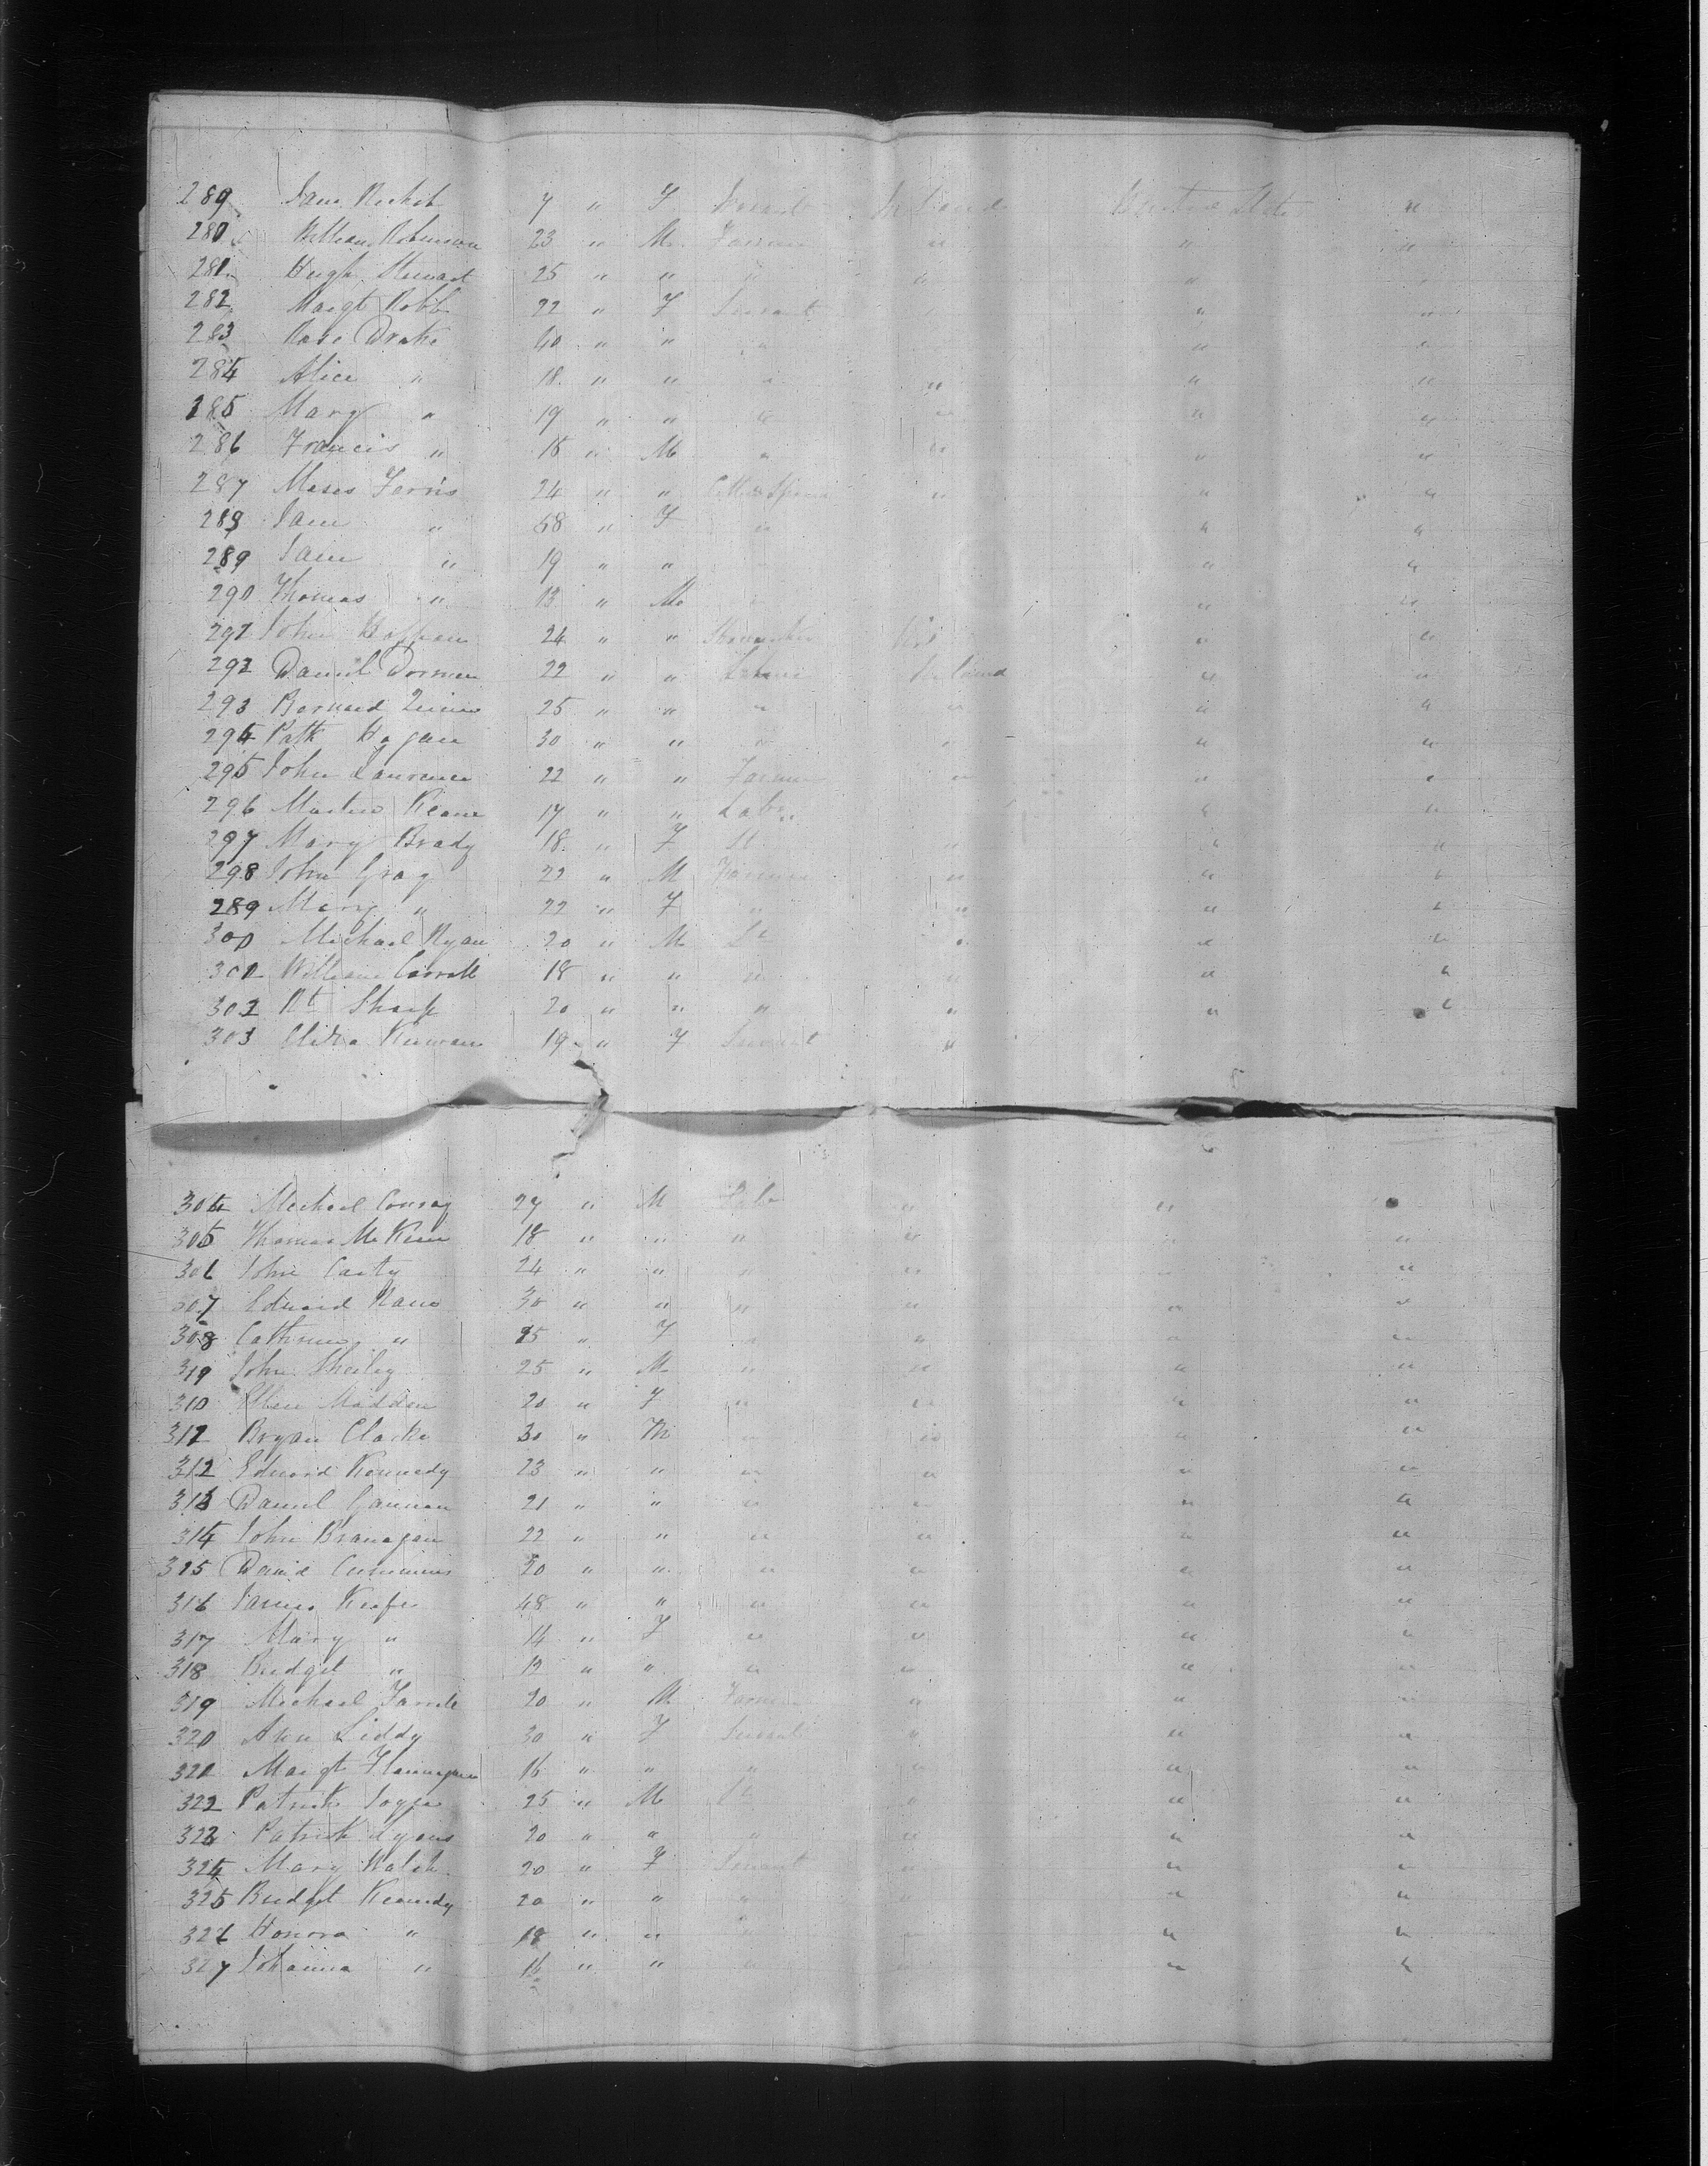 289 Jane Nesbit 7 " F Servant Ireland United States "
280 William Robinson 23 " M Farmer " " "
281 Hugh Stewart 25 " " " " "
282 Margt Robb 22 " F Servant " "
283 Rose Drake 40 " " " " "
284 Alice " 18 " " " " " "
285 Mary " 19 " " " " " "
286 Francis " 18 " M " " " "
287 Moses Ferris 24 " " " " "
289 Jane " 58 " F " " "
289 Jane " 19 " " " "
290 Thomas " 13 " M " "
292 John 24 " " " "
292 Daniel Dornan 22 " " Ireland " "
293 Bernard Quinn 25 " " " " " "
294 Patk Hagan 30 " " " " " "
295 John Lawrence 22 " " Farmer " " "
296 Martin Keane 17 " " Labr " "
297 Mary Brady 18 " F " " "
298 John Gray 22 " M Farmer " " "
289 Mary " 22 " F " " " "
300 Michael Ryan 20 " M " " "
301 William Carroll 18 " " " " " "
302 Rt Sharp 20 " " " " " "
303 Eliza Kerwan 19 " F Servant "
304 Michael Conray 27 " M Labr " "
305 Thomas McKeen 18 " " " " " "
306 John Carty 24 " " " " "
307 Edward Kane 30 " " " " " "
308 Catherine " 25 " F " " " "
319 John Sheily 25 " M " " " "
310 Ellen Madden 20 " F " " " "
312 Bryan Clarke 30 " M " " " "
312 Edward Kennedy 23 " " " " " "
313 Daniel Gannon 21 " " " " " "
314 John Branagan 22 " " " " " "
315 David Cummins 30 " " " " " "
316 James Keefe 48 " " " " " "
317 Mary " 14 " F " " " "
318 Bridget " 12 " " " " " "
319 Michael 20 " M Farmer " " "
320 Ann Liddy 30 " F Servant " " "
321 Margt Flannagan 16 " " " " " "
322 Patrick Joyce 25 " M " " "
323 Patrick Lyons 20 " " " " " "
324 Mary Walsh 20 " F Servant " " "
325 Bridget Kennedy 20 " " " " "
326 Honora " 18 " " " " "
327 Johanna " 16 " " " " "